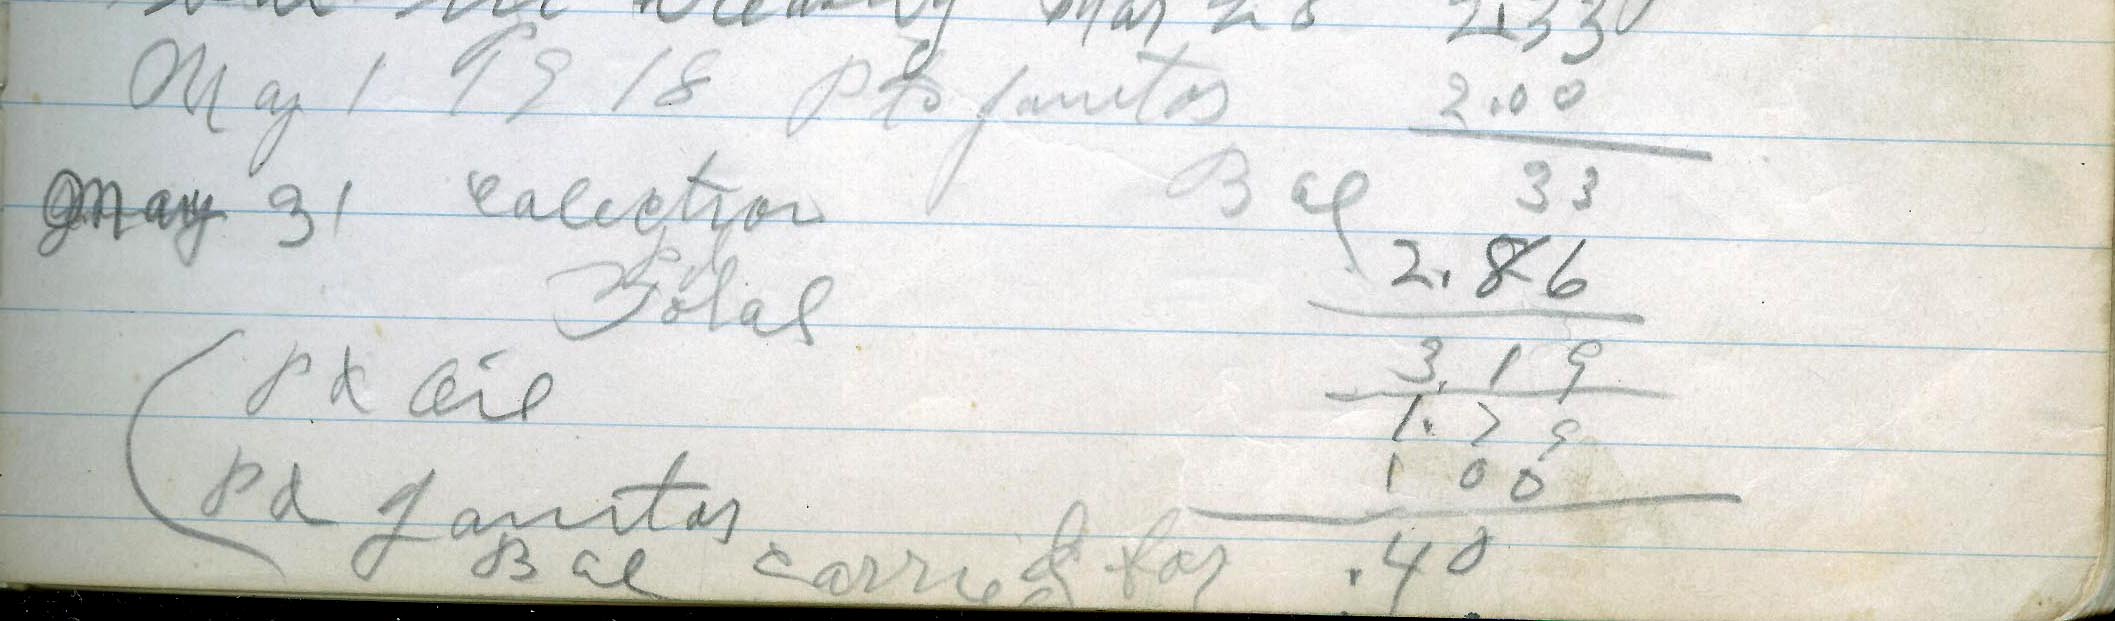 Mar 28 2.33
May 1 1918 Pd to janitor 2.00
Bal 33
May 31 colection 2.86
Total 3.19
pd oil 1.79
pd Janitor 1 00
Bal carried for .40